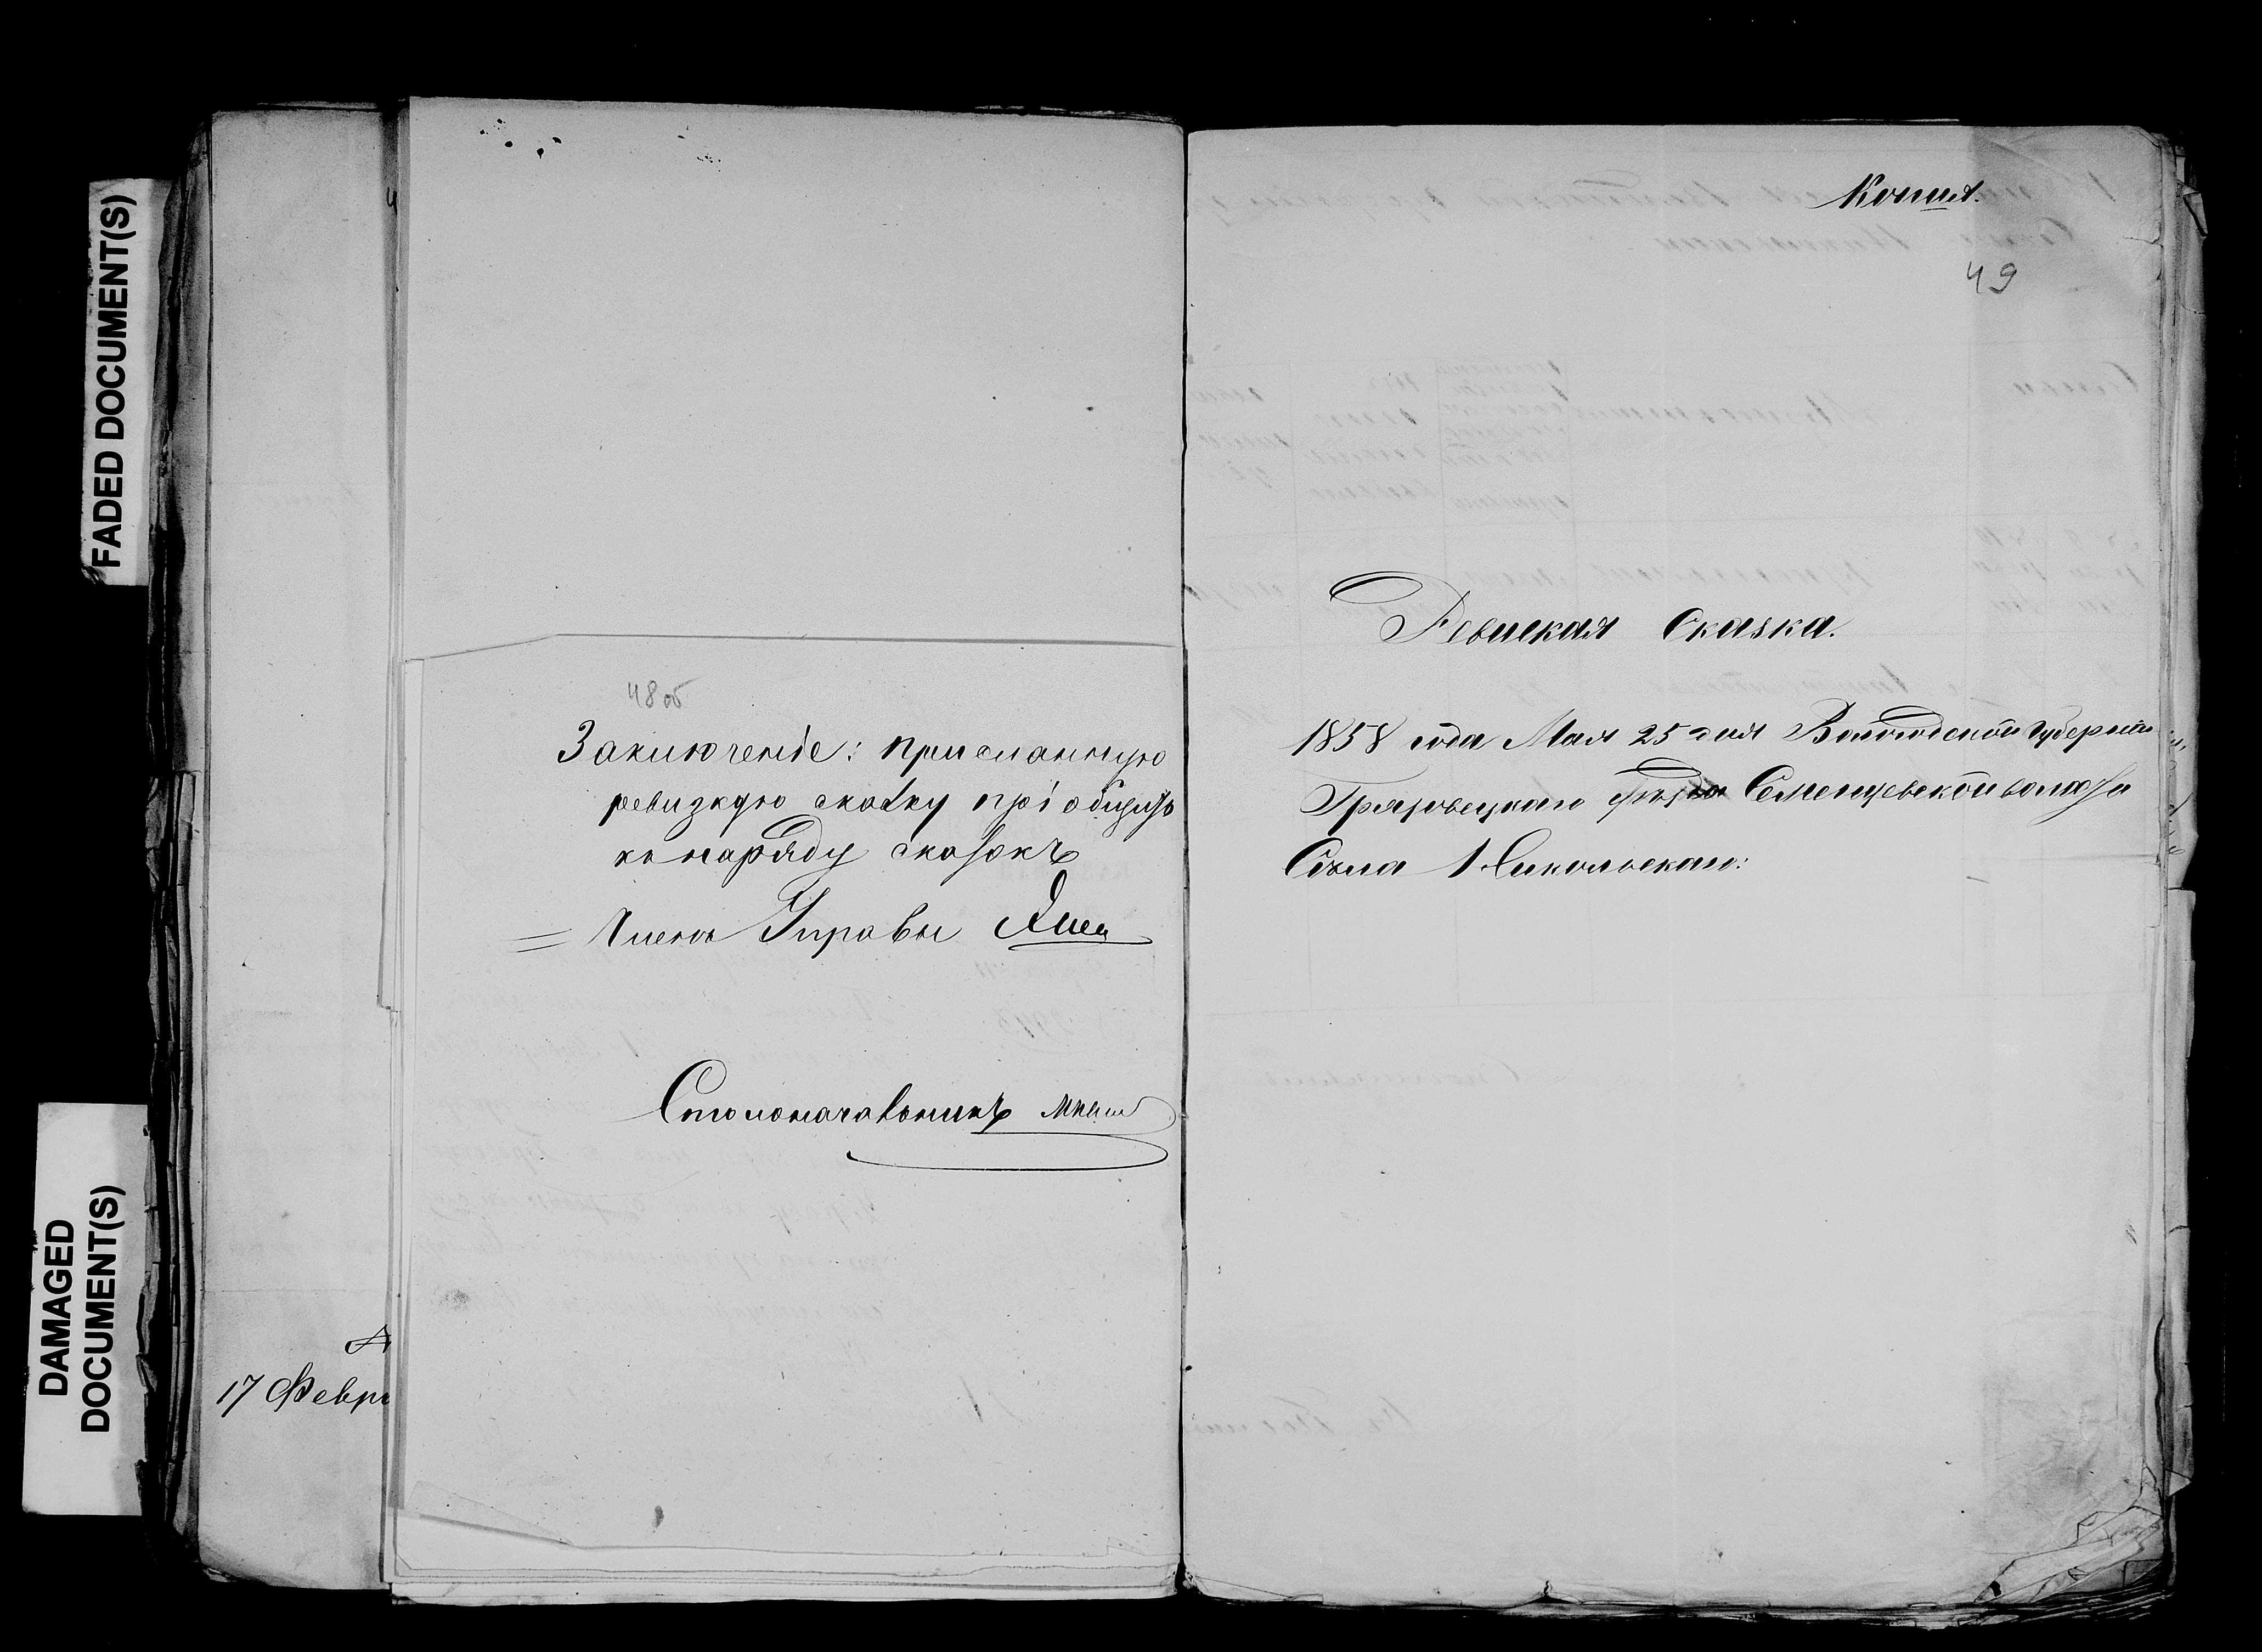 FADED DOCUMENT(S)
DAMAGED
DOCUMENT(S)
17 Февр
48 об
Заключеніе: присланную
ревизкую скаску пріобщить
къ наряду сказокъ
Членъ Управы
Столоначальникъ
Копия.
49
Ревиская Сказка.
1858 года Мая 25 дня Вологодской Губерніи
Грязовецкаго Семенцевской волости
Села Никольскаго: